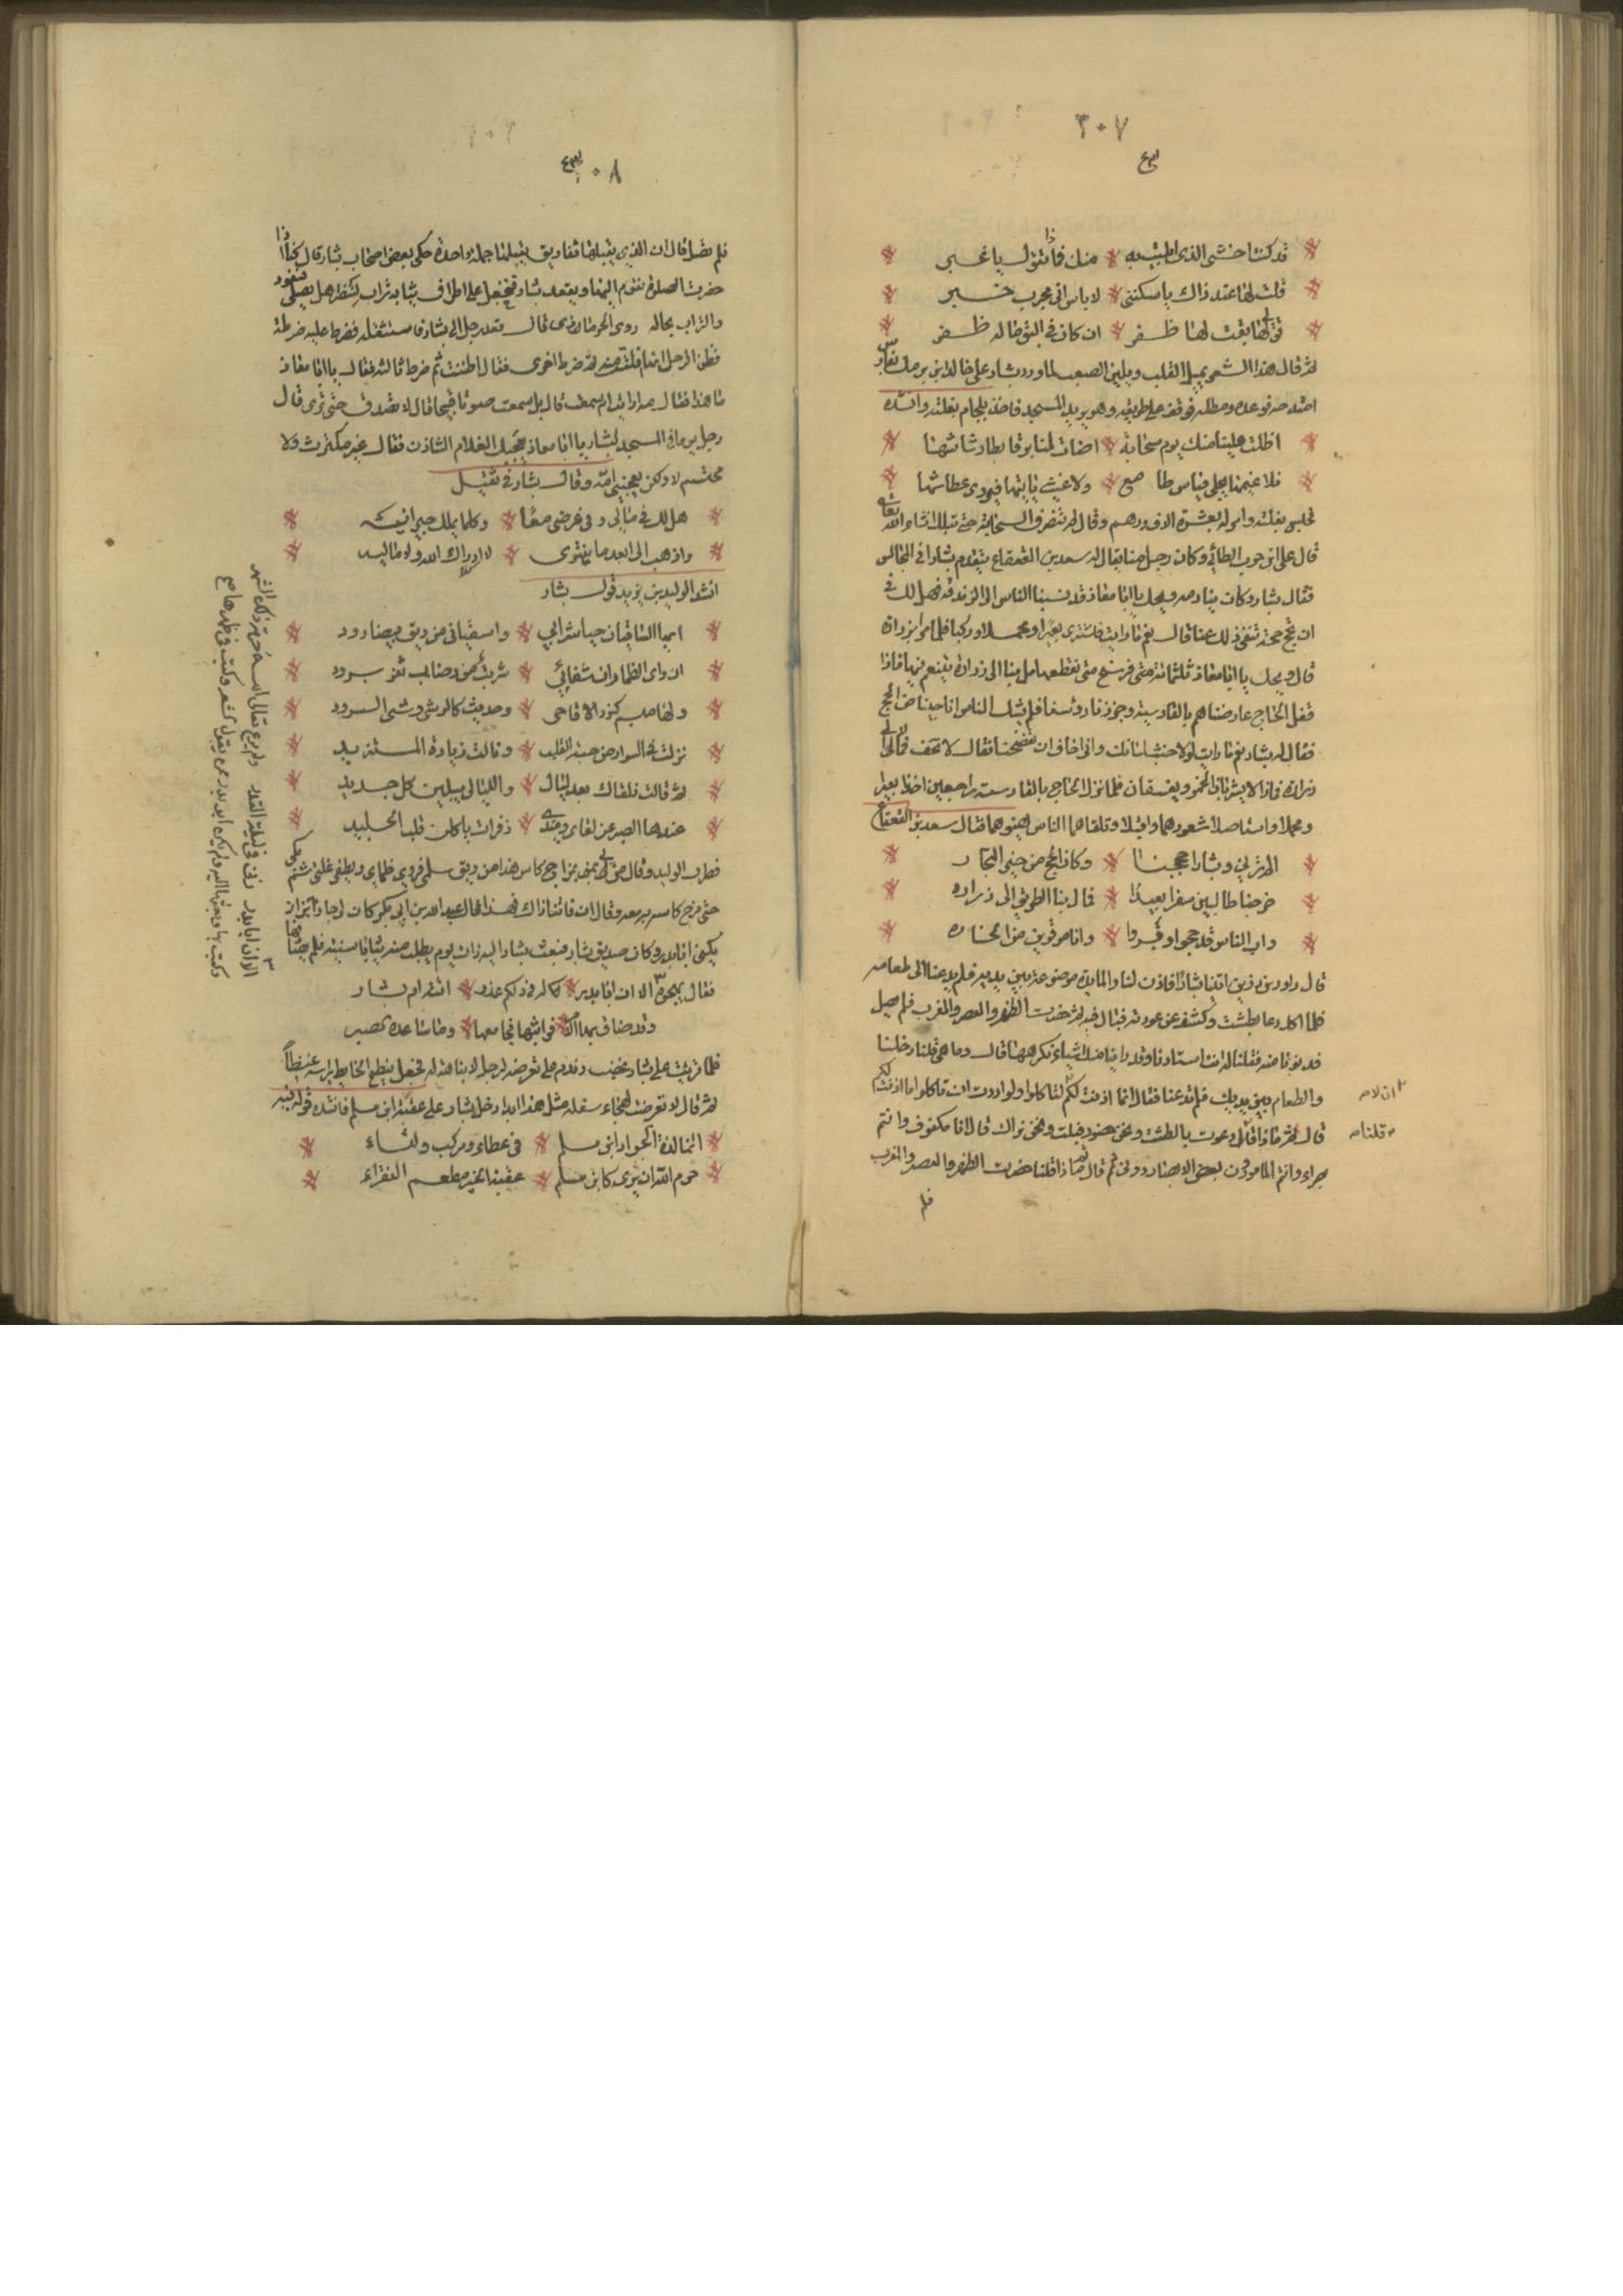 ٣٠٧
قد كنت اخشى الذي ابتليت به منك فماذا نقول يا عبر
قلت لها عند ذاك يا سكنى لا باس اني مجرب خبر
قولي لها بقت لها ظفر ان كان في البق ما له ظفر
ثم قال هذا الشعر يميل القلب ويلين الصعب لما ورد بشار على خالد بن برمك بفارس
امتدحه فوعده ومطله فوقف على طريقه وهو يريد المسجد فاخذ بلجام بغلته وانشده
اظلت علينا منك يوم سحابة اضات لنا برقا وابطا رشاشها
فلا غيمها يجلى فيياس طامع ولا غيث ياتيها فيروى عطاشها
فحبس بغلته وامر له بعشرة الاف درهم وقال لن تنصرف السحابة حتى تبلك انشاء الله تعالى
قال على بن حرب الطائي وكان رجل منا يقال له سعد بن القعقاع يتقدم بشارا في المجالس
فقال بشار وكان ينادمه ويحك يا ابا معاذ قد نسبنا الناس الى الزندقة فهل لك في
ان نحج حجة تنفى ذلك عنا قال نعم ما رايت فاشترى بعيرا ومحملا وركبا فلما مرا بزرارة
قال ويحك يا ابا معاذ ثلثمائة فرسخ متى نقطعها مل بنا الى زرارة نتنعم فيها فاذا
قفل الحاج عارضناهم بالقادسية وجززنا رؤسنا فلم يشك الناس انا جينا من الحج
فقال له بشار نعم ما رايت لولا خبث لسانك واني اخاف ان تفضحنا فقال لا تخف فمالا الى
زرارة فما زالا يشربان الخمر ويفسقان فلما نزل الحاج بالقادسية راجعين اخذا بعيرا
ومحملا واستاصلا شعورهما واقبلا وتلقاهما الناس يهنوهما فقال سعد بن القعقاع
الم ترني وبشارا حججنا وكان الحج من خير التجار
خرجنا طالبين سفرا بعيدا فمال بنا الطريق الى زراره
واب الناس قد حجوا وبروا وابنا موقرين من الخساره
قال داود بن رزين اتينا بشارا فاذن لنا والمايدة موضوعة بين يديه فلم يدعنا الى طعامه
فلما اكل دعا بطشت وكشف عن عورته فبال فيه ثم حضرت الظهر والعصر والمغرب فلم يصل
فدنونا منه فقلنا له انت استاذنا وقد راينا منك اشياء نكرهها قال وما هي قلنا دخلنا
والطعام بين يديك فلم تدعنا فقال انما اذنت لكم لتاكلوا ولو اردت ان تاكلوا ما اذنت لكم
قال ثم ماذا قال دعوت بالطشت ونحن حضور فبلت ونحن نراك قال انا مكفوف وانتم
بصراء وانتم المامورون بغض الابصار دوني ثم قال ثم ماذا قلنا حضرت الظهر والعصر والمغرب
فلم
ان لا ص
قلنا ص
٣٠٨
فلم تصل قال ان الذي يقبلها تفاريق يقبلها جملة واحدة حكى بعض اصحاب بشار قال كنا اذا
حضرت الصلوة نقوم اليها ويقعد بشار فنجعل على اطراف ثيابه تراب لننظر هل يصلي فنعود
والتراب بحاله روى الحرمازى قال قعد رجل الى بشار فاستثقله فضرط عليه ضرطة
فظن الرجل انها فلتت منه ثم ضرط اخرى فقال افلتت ثم ضرط ثالثة فقال يا ابا معاذ
ما هذا فقال مه ارايت ام سمعت قال بل سمعت صوتا قبيحا قال لا تصدق حتى ترى قال
رجل يوما في المسجد لبشار يا ابا معاذ يعجبك الغلام الشاذن فقال غير مكترث ولا
محتشم لا ولكن يعجبني امه وقال بشار في ثقيل
هل لك في مالي وفي عرضي معا وكلما يملك جيرانيه
واذهب الى ابعد ما ينتوى لا ردك الله ولا ماليه
انشد الوليد بن يزيد قول بشار
ايها الساقيان صبا شرابي واسقياني من ريق بيضا رود
ان داى الظما وان شفائي شربة من رضاب ثغر برود
ولها مبسم كثغر الاقاحى وحديث كالوشى وشى السرود
نزلت في السواد من حبة القلب ونالت زيادة المستزيد
ثم قالت نلقاك بعد ليال والليالي يبلين كل جديد
عندها الصبر عن لقاى وعندي زفرات ياكلن قلب الحديد
فطرب الوليد وقال من لي بمزاج كاس هذا من ريق سلمى فيروى ظماي ويطفي غلتى ثم بكى
حتى مزج كاسه بدمعه وقال ان فاتنا ذاك فهذا قال عبد الله بن ابي بكر كان لي جار بزاز
يكنى ابا بدر وكان صديق بشار فبعث بشار اليه ذات يوم يطلب منه ثيابا نسية فلم يصبها
فقال يهجوه الا ان ابا بدر له في ذلكم عذر
فلما قريت على بشار غضب وندم على تعرضه لرجل لا نباهة له فجعل ينطح الحايط براسه غيظا
ثم قال لا تعرضت لهجاء سفلة مثل هذا ابدا دخل بشار على عقبة ابن مسلم فانشده قوله فيه
انما لذة الجواد ابن سلم في عطاء ومركب ولقاء
حرم الله ان يرى كابن سلم عقبة الخير مطعم الفقراء
الا ان ابا بدر زنى في ليلة القدر ولم يرع تعالى الله حرمة ذلك الشهر
وكتب بها وبعثها اليه ولم يكن ابو بدر ممن يقول شعر وكتب في ظهرها